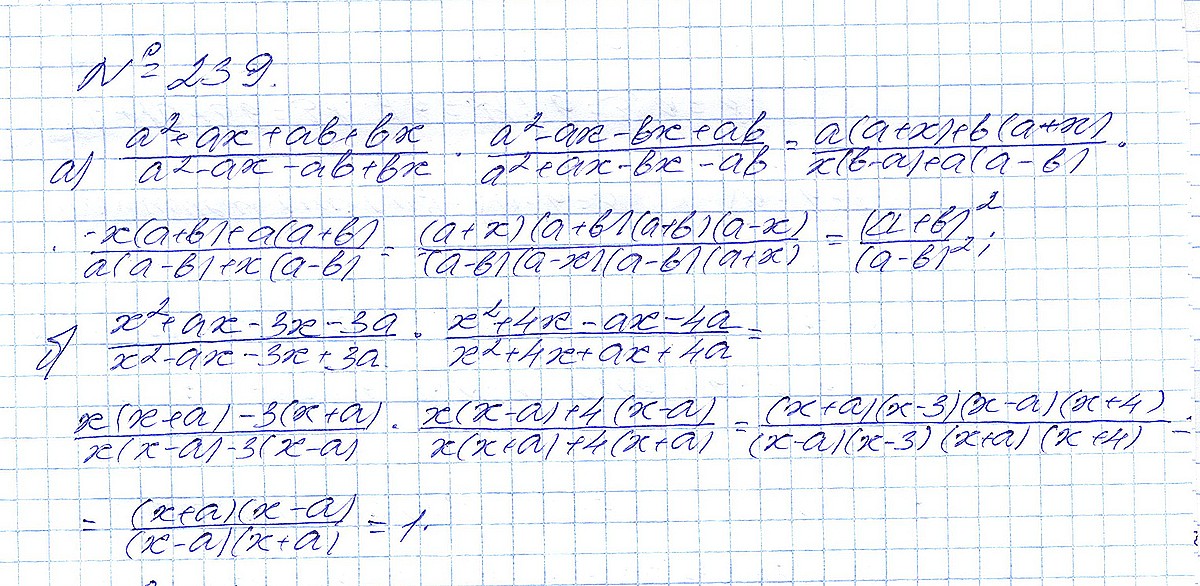 № 239.
а) (a²+ax+ab+bx)/(a²-ax-ab+bx) · (a²-ax-bx+ab)/(a²+ax-bx-ab) = (a(a+x)+b(a+x))/(x(b-a)+a(a-b)) ·
· (-x(a+b)+a(a+b))/(a(a-b)+x(a-b)) = ((a+x)(a+b)(a+b)(a-x))/((a-b)(a-x)(a-b)(a+x)) = (a+b)²/(a-b)²;
б) (x²+ax-3x-3a)/(x²-ax-3x+3a) · (x²+4x-ax-4a)/(x²+4x+ax+4a) =
(x(x+a)-3(x+a))/(x(x-a)-3(x-a)) · (x(x-a)+4(x-a))/(x(x+a)+4(x+a)) = ((x+a)(x-3)(x-a)(x+4))/((x-a)(x-3)(x+a)(x+4)) =
= ((x+a)(x-a))/((x-a)(x+a)) = 1.